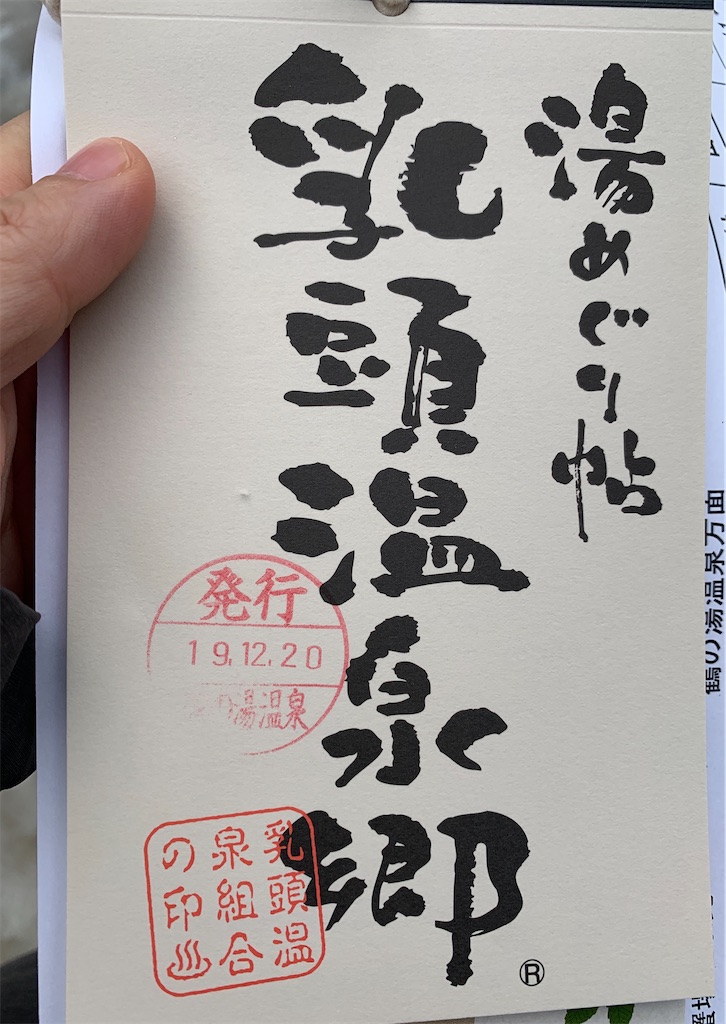 湯めぐり帖
乳頭温泉郷
®
発行
19.12.20
の湯温泉
乳頭温
泉組合
の印♨
鶴の湯温泉方面